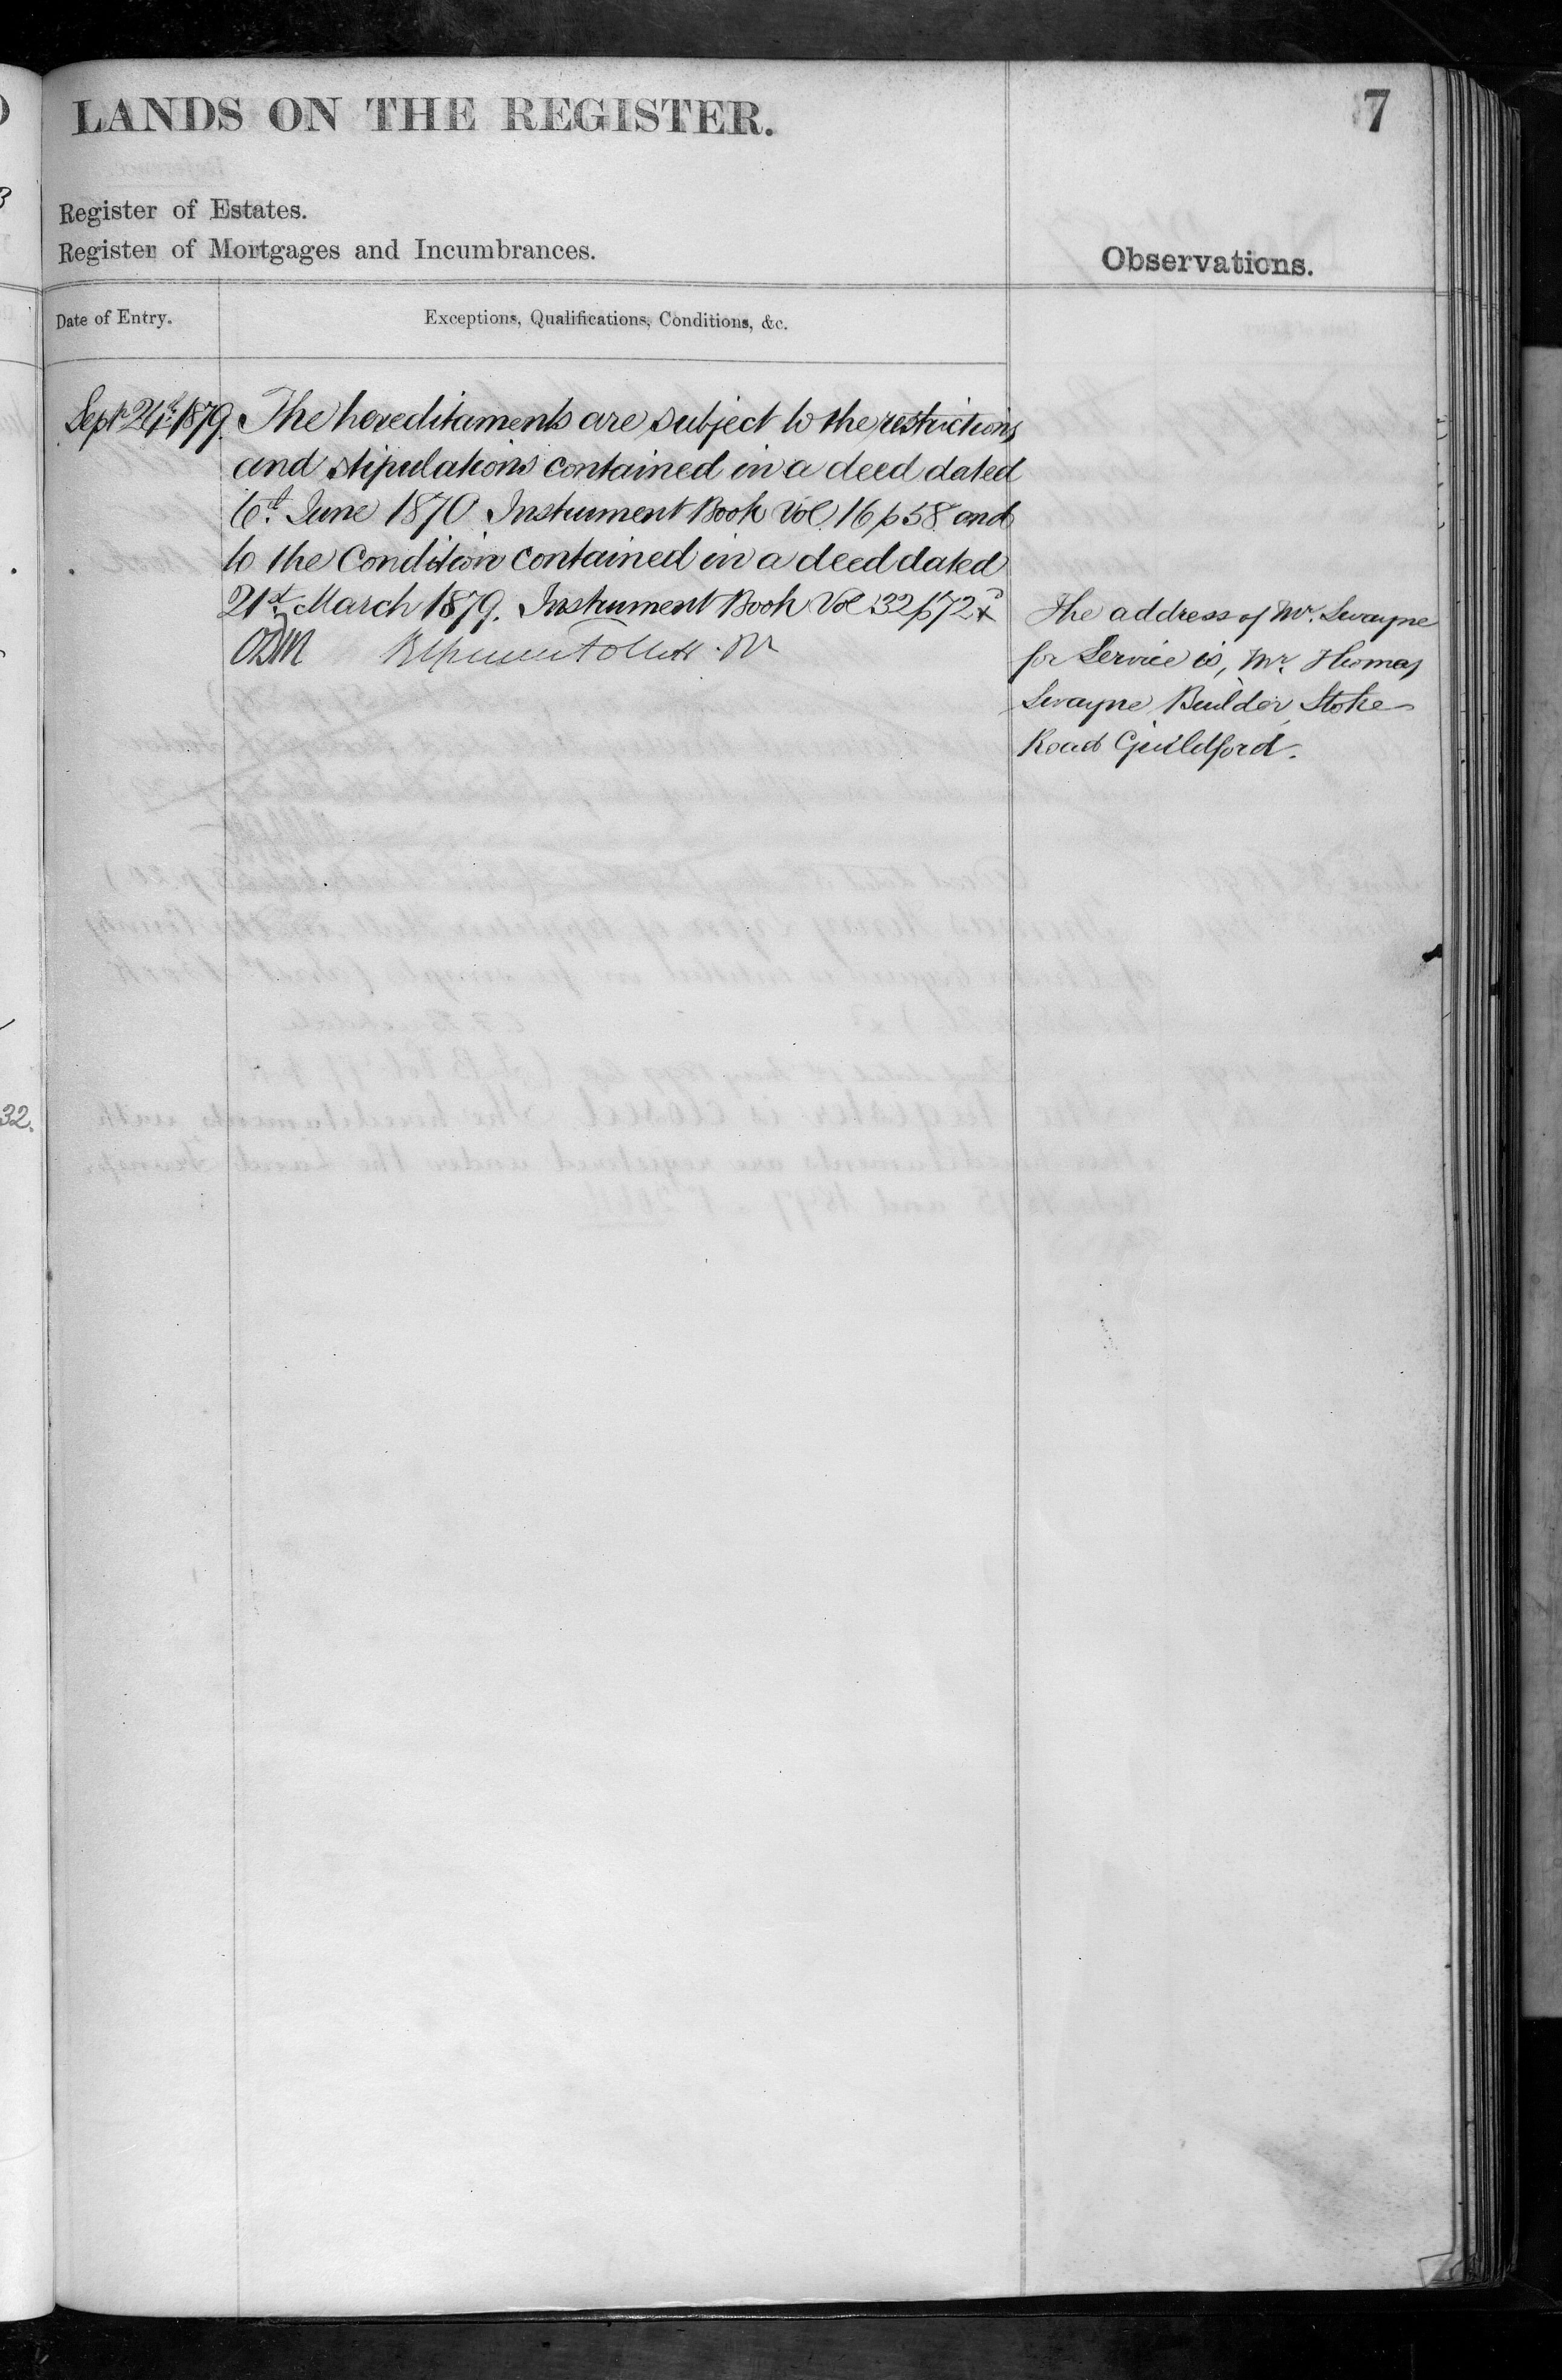 LANDS ON THE REGISTER.
7
Register of Estates.
Register of Mortgages and Incumbrances.
Observations.
Date of Entry.
Exceptions, Qualifications, Conditions, &c.
Sept 24th 1879. The hereditaments are subject to the restrictions
and stipulations contained in a deed dated
6th June 1870 Instrument Book Vol. 16 p 58 and
to the Condition contained in a deed dated
21st March 1879. Instrument Book Vol 32 p 72
The address of Mr. Swayne
for Service is, Mr. Thomas
Swayne, Builder, Stoke
Road Guildford.
32.